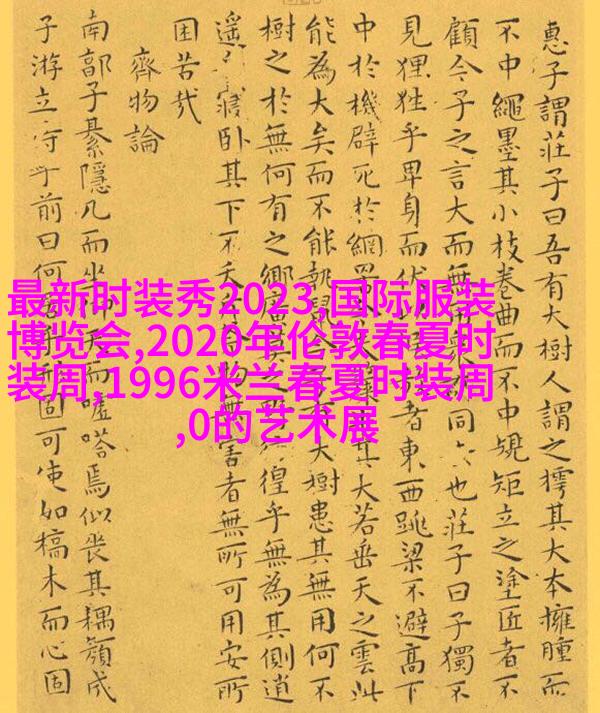 惠子謂莊子曰吾有大樹人謂之樗其大本擁腫而
不中繩墨其小枝卷曲而不中規矩立之塗匠者不
顧今子之言大而無用眾同也莊子曰子獨不
見狸狌乎卑身而伏者東西跳梁不避高下
中於機辟死於網罟其大若垂天之雲此
能為大矣而不能執鼠大樹患其無用何不
樹之於無何有之鄉廣莫之徨乎無為其側逍
遙寢卧其下不夭物無害者無所可用安所
困苦哉
齊物論
南郭子綦隱几而坐仰天而噓嗒焉似喪其耦顏成
子游立侍乎前曰何形固可使如槁木而心固
最新时装秀2023 国际服装
博览会,2020年伦敦春夏时
装周,1996米兰春夏时装周
,0的艺术展